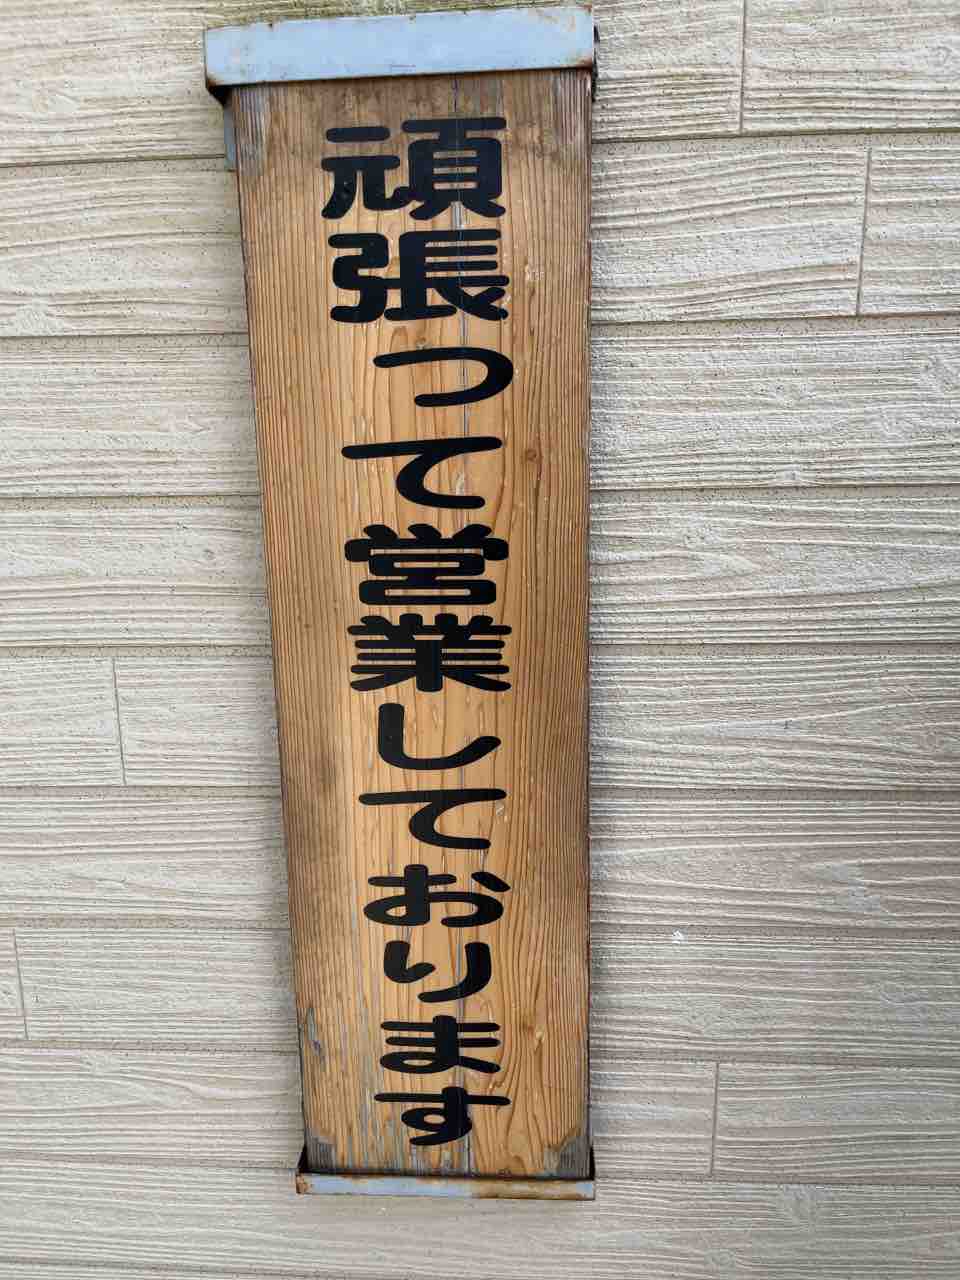 頑張って営業しております